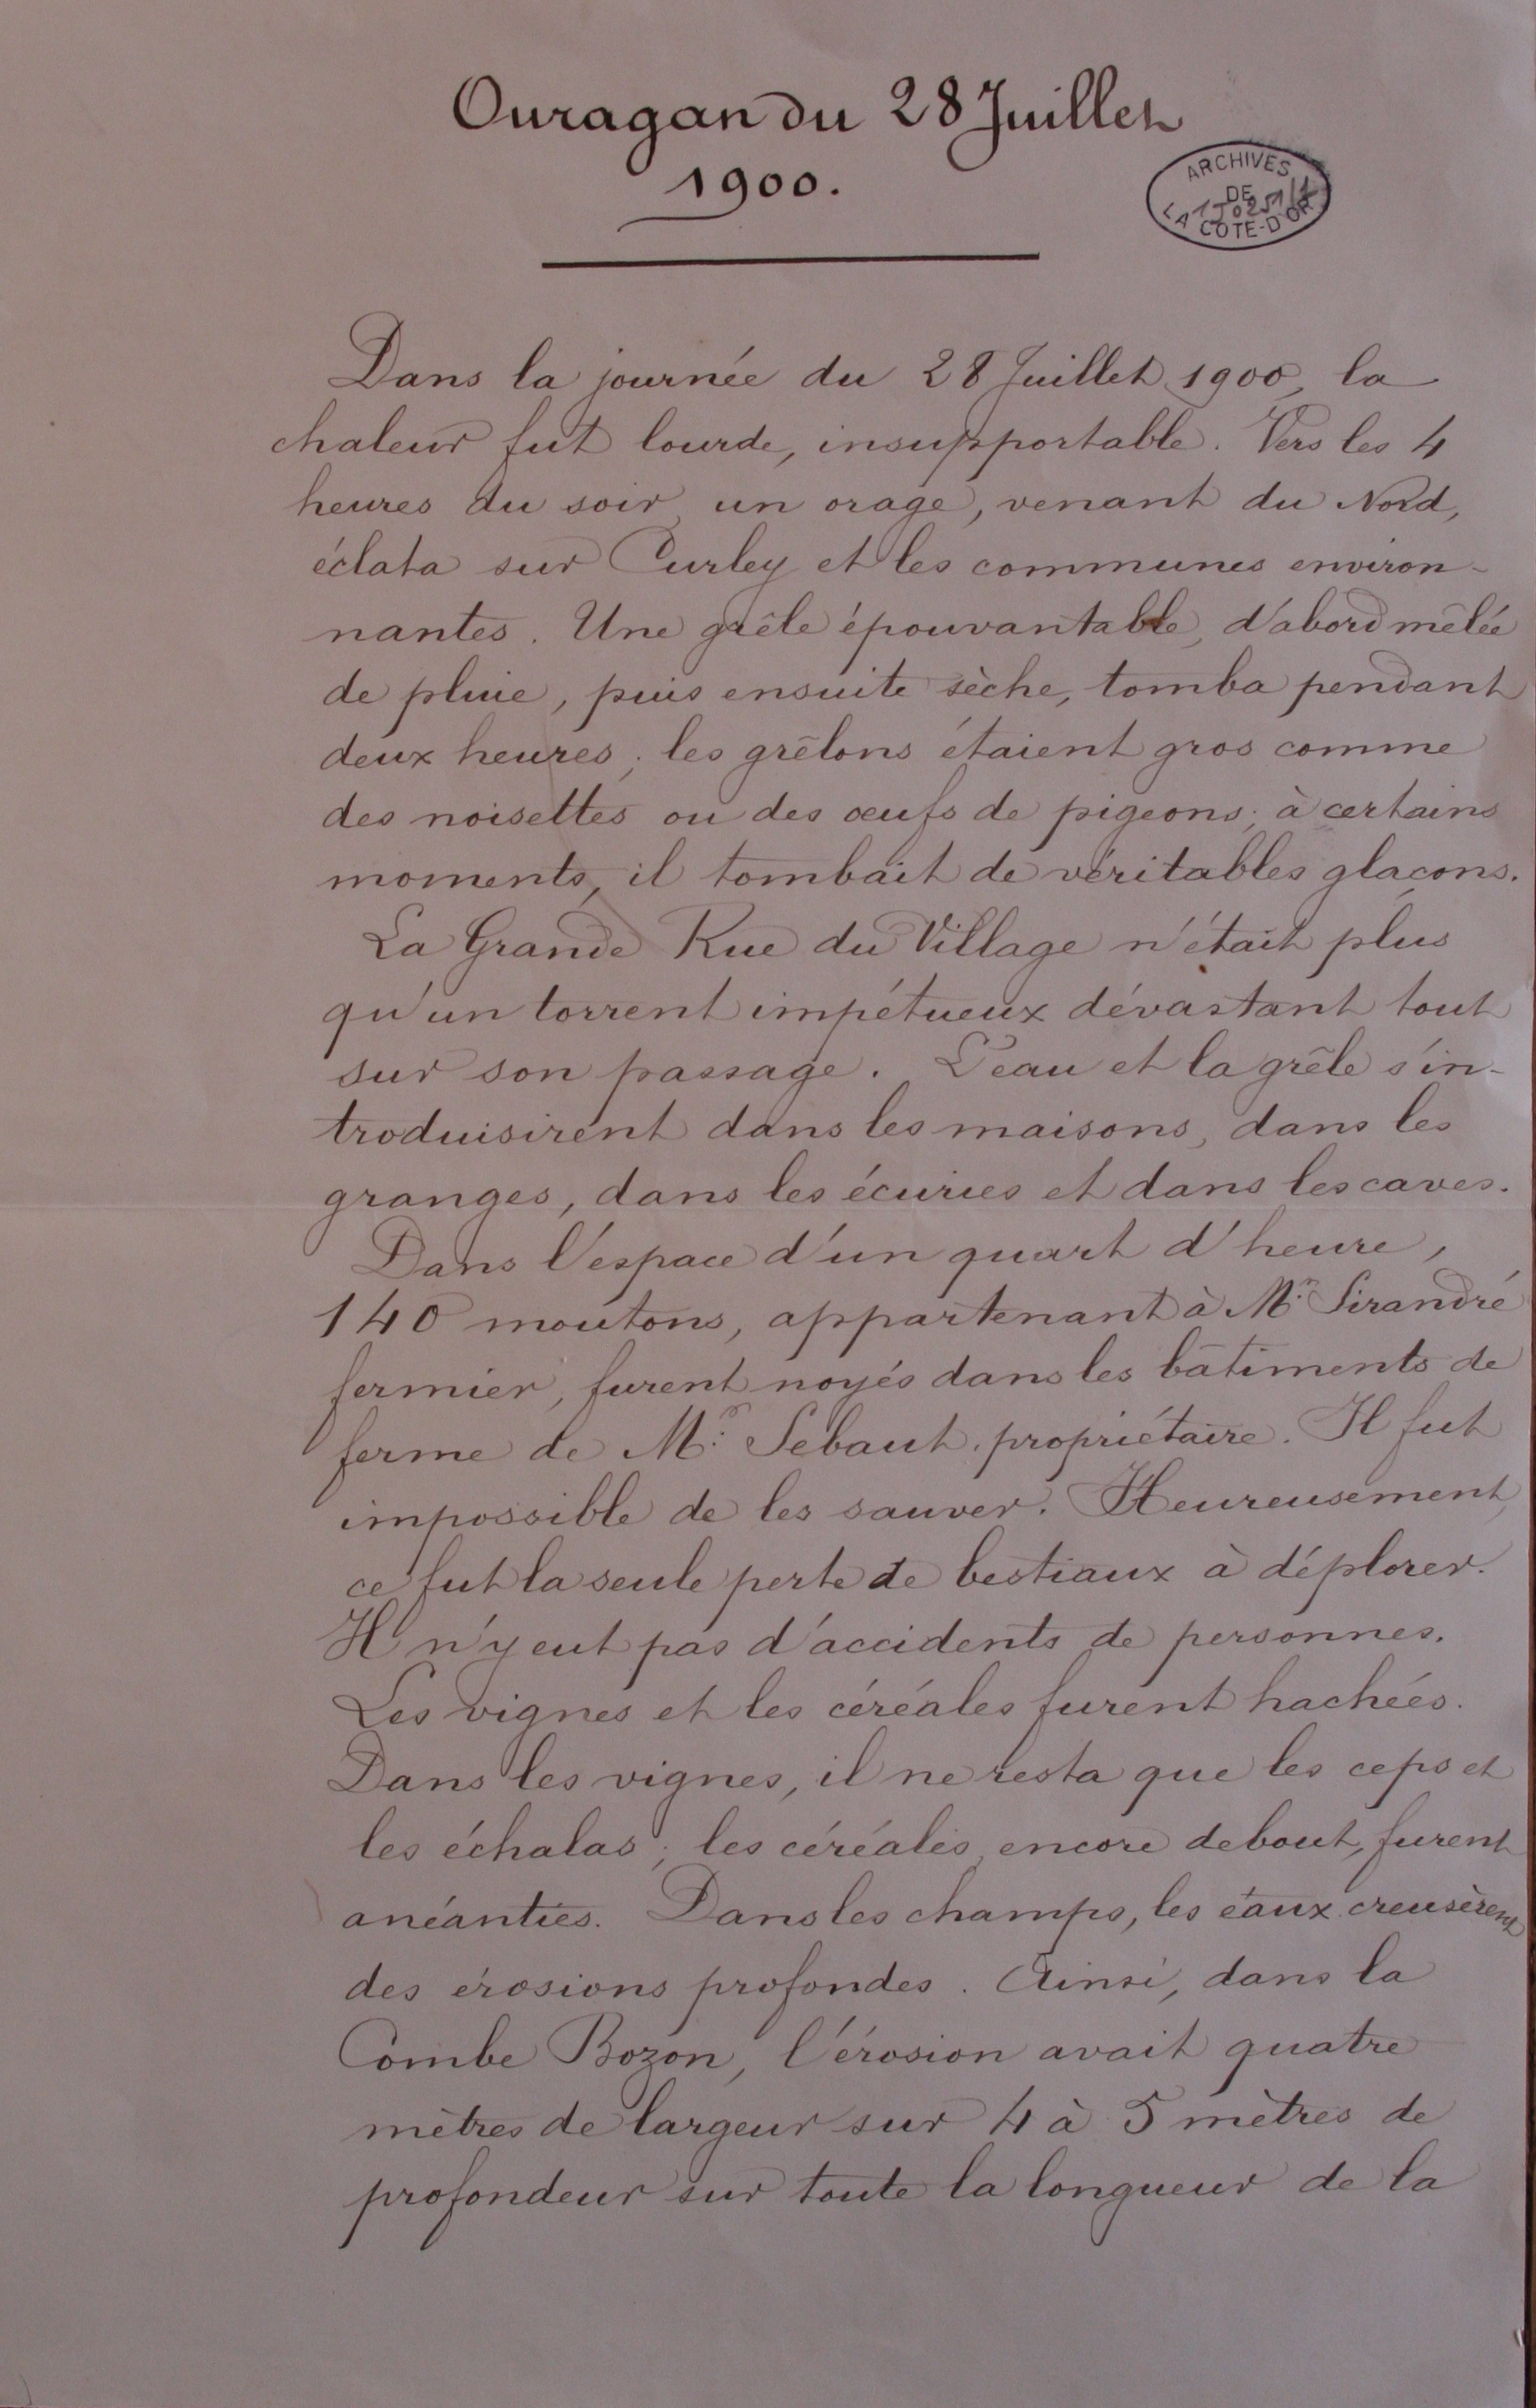 Ouragan du 28 Juillet
1900.
ARCHIVES
DE
LA COTE-D'OR
Dans la journée du 28 Juillet 1900, la
chaleur fut lourde, insupportable. Vers les 4
heures du soir, un orage, venant du Nord,
éclata sur Curley et les communes environ-
nantes. Une grêle épouvantable, d'abord mêlée
de pluie, puis ensuite sèche, tomba pendant
deux heures; les grêlons étaient gros comme
des noisettes ou des œufs de pigeons; à certains
moments, il tombait de véritables glaçons.
La Grande Rue du Village n'était plus
qu'un torrent impétueux dévastant tout
sur son passage. L'eau et la grêle s'in-
troduisirent dans les maisons, dans les
granges, dans les écuries et dans les caves.
Dans l'espace d'un quart d'heure,
140 moutons, appartenant à Mr. Sirandré
fermier, furent noyés dans les bâtiments de
ferme de Mr. Sebaut, propriétaire. Il fut
impossible de les sauver. Heureusement,
ce fut la seule perte de bestiaux à déplorer.
Il n'y eut pas d'accidents de personnes.
Les vignes et les céréales furent hachées.
Dans les vignes, il ne resta que les ceps et
les échalas; les céréales, encore debout, furent
anéanties. Dans les champs, les eaux creusèrent
des érosions profondes. Ainsi, dans la
Combe Bozon, l'érosion avait quatre
mètres de largeur sur 4 à 5 mètres de
profondeur sur toute la longueur de la